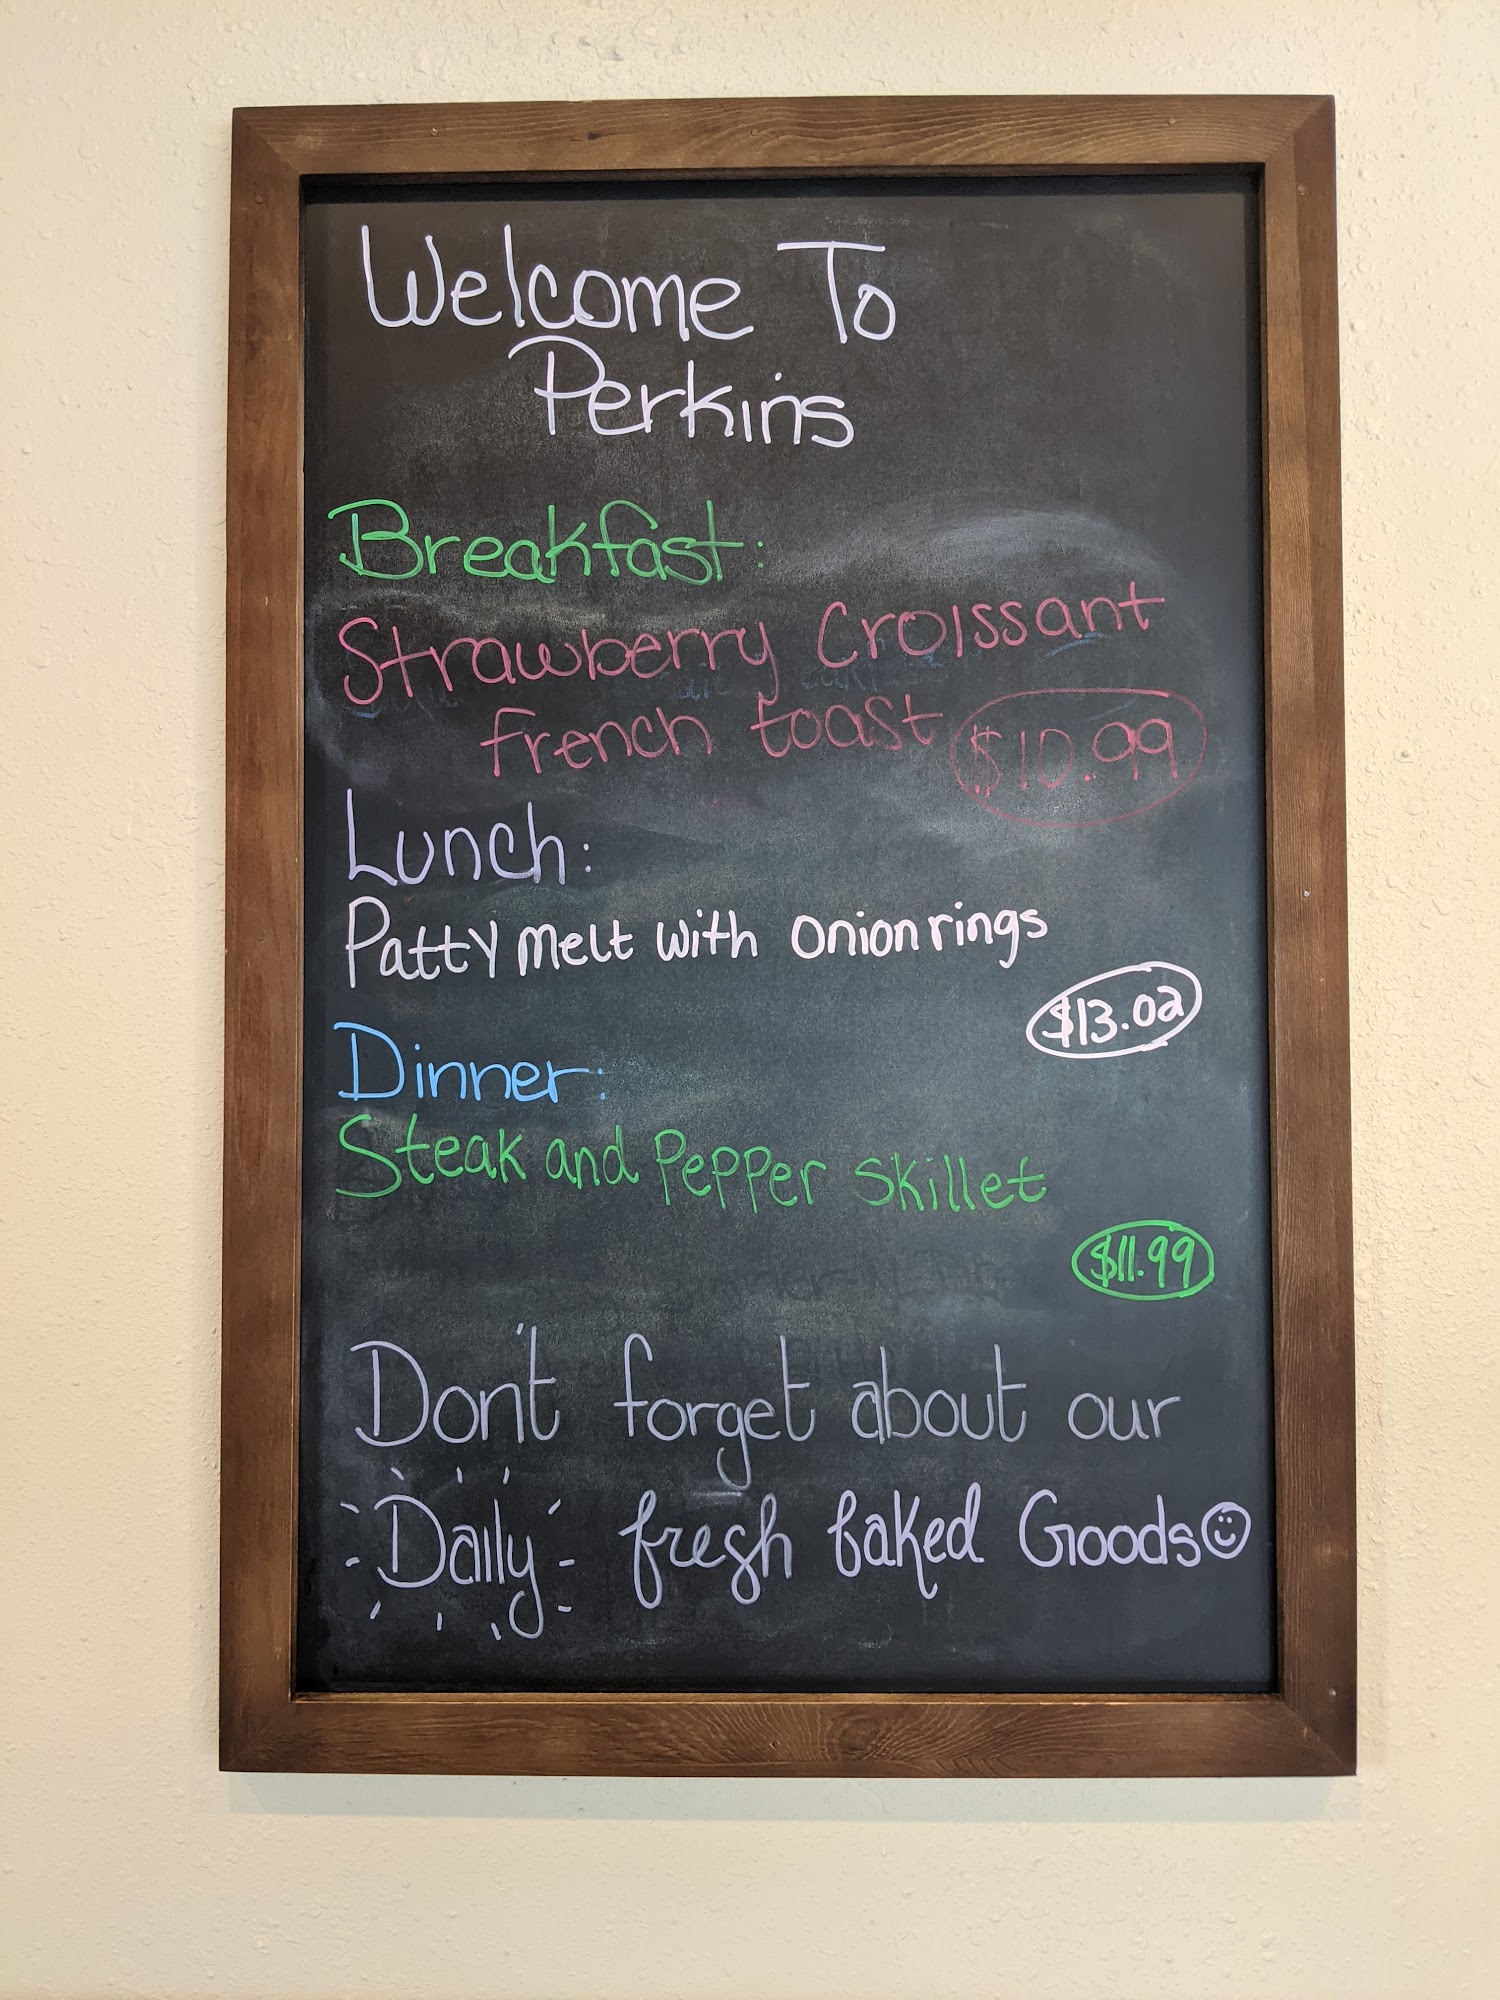 Welcome To
Perkins
Breakfast:
Strawberry Croissant
french toast $10.99
Lunch:
Patty melt with onion rings
$13.02
Dinner:
Steak and Pepper skillet
$11.99
Don't forget about our
Daily fresh baked Goods